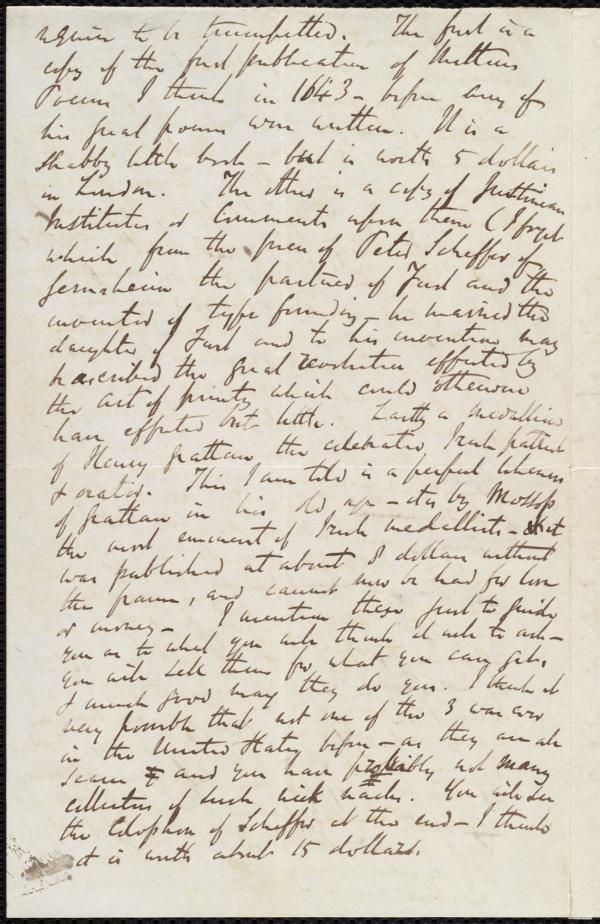 require to be trumpetted. The first is a
copy of the first publication of Miltons
Poems I think in 1643 - before any of
his great poems were written. It is a
shabby little book - but is worth 5 dollars
in London. The other is a copy of Justinian
Institutes or Comments upon them (I forget
which from the press of Peter Scheffer of
Gernsheim the partner of Fust and the
inventor of type founding - he married the
daughter of Fust and to his invention may
be ascribed the great revolution effected by
the art of printing which could otherwise
have effected but little. Lastly a medallion
of Henry Grattan the celebrated Irish patriot
& orator. This I am told is a perfect likeness
of Grattan in his old age - it is by Mossop
the most eminent of Irish medallists - it
was published at about 8 dollars without
the frame, and cannot now be had for love
or money - I mention these just to guide
you as to what you will think it well to ask -
you will sell them for what you can get,
& much good may they do you. I think it
very possible that not one of the 3 was ever
in the United States before - as they are all
scarce & and you have probably not many
collectors of such nick nacks. You will see
the Colophon of Scheffer at the end - I think
it is worth about 15 dollars.